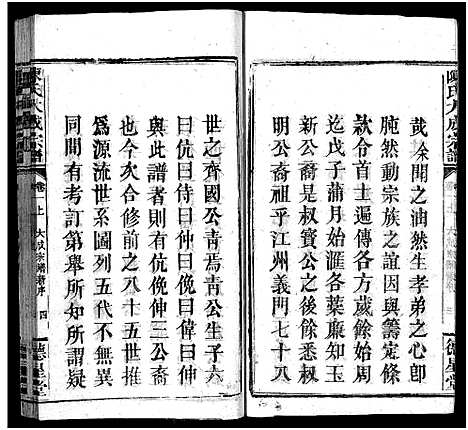 陳氏大成宗譜
卷一上
大成宗譜新序
德星堂
哉余聞之油然生孝弟之心卽
肫然動宗族之誼因與籌定條
款令首士遍傳各方歲餘始周
迄戊子蒲月始滙各葉廉知玉
新公裔是叔寶公之後餘悉叔
明公裔祖乎江州義門七十八
世之齊國公青焉青公生子六
曰伉曰侍曰俛曰伸曰偉曰仲
與此譜者則有伉俛伸三公裔
也今次合修乃以八十五世推
爲源流世系圖列五代不無異
同間有考訂第舉所知所謂疑
陳氏大成宗譜
卷一上
大成宗譜新序
四
德星堂